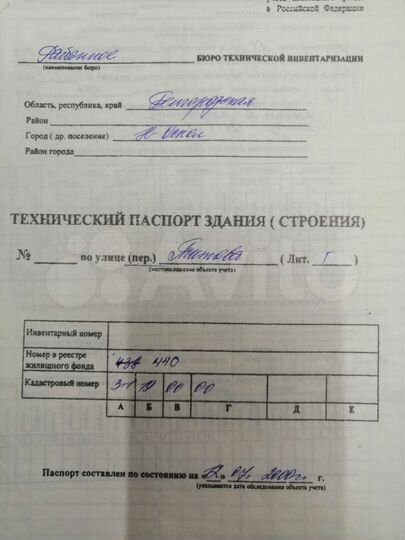 в Российской Федерации
Районное БЮРО ТЕХНИЧЕСКОЙ ИНВЕНТАРИЗАЦИИ
(наименование бюро)
Область, республика, край Белгородская
Район
Город ( др. поселение) Н Оскол
Район города
ТЕХНИЧЕСКИЙ ПАСПОРТ ЗДАНИЯ ( СТРОЕНИЯ)
№ по улице (пер.) Титова ( Лит. Г )
(местоположение объекта учета)
Инвентарный номер
Номер в реестре
жилищного фонда 440
Кадастровый номер 31 10 00 00
А Б В Г Д Е
Паспорт составлен по состоянию на «12» 07. 2000 г.
(указывается дата обследования объекта учета)
Avito